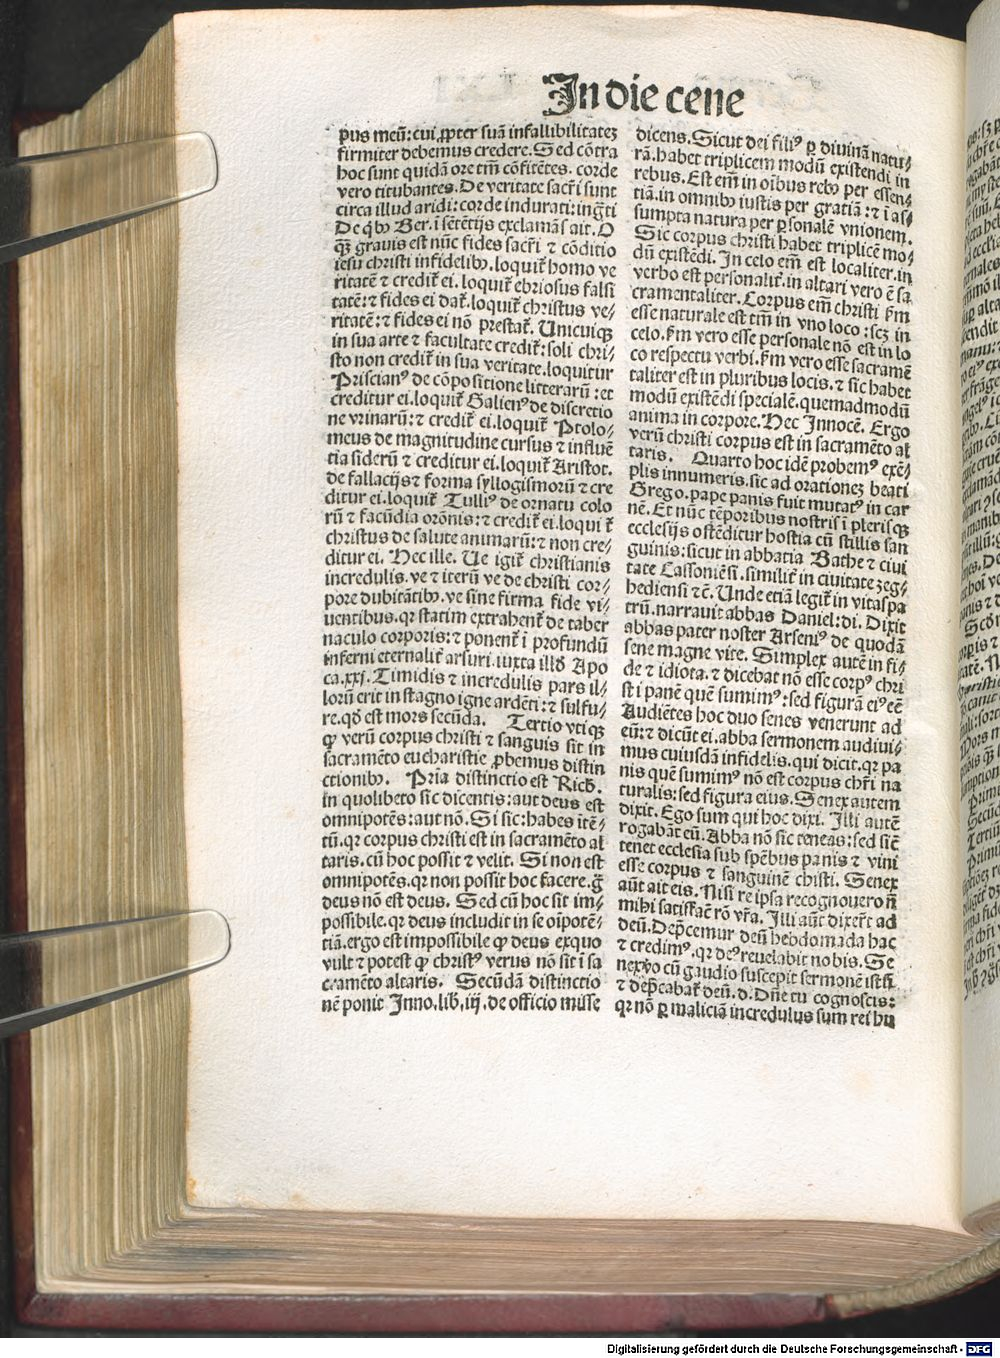 In die cene
pus meū: cui ꝓpter suā infallibilitatez
firmiter debemus credere. Sed cōtra
hoc sunt quidā ore tm̄ cōfitētes. corde
vero titubantes. De veritate sacr̄i sunt
circa illud aridi: corde indurati: ingr̄ti
De qͥbꝰ Ber. i sētētijs exclamās ait. O
qͣꝫ grauis est nūc fides sacr̄i ⁊ cōditio
iesu christi infidelibꝰ. loquit̄ homo ve
ritatē ⁊ credit̄ ei. loquit̄ ebriosus falsi
tatē: ⁊ fides ei dat̄. loquit̄ christus ve⸗
ritatē: ⁊ fides ei nō prestat̄. Unicuiqꝫ
in sua arte ⁊ facultate credit̄: soli chri⸗
sto non credit̄ in sua veritate. loquitur
Priscianꝰ de cōpositione litterarū: et
creditur ei. loquit̄ Galienꝰ de discretio
ne vrinarū: ⁊ credit̄ ei. loquit̄ Ptolo⸗
meus de magnitudine cursus ⁊ influē
tia siderū ⁊ creditur ei. loquit̄ Aristot.
de fallacijs ⁊ forma syllogismorū ⁊ cre
ditur ei. loquit̄ Tulliꝰ de ornatu colo
rū ⁊ facūdia orōnis: ⁊ credit̄ ei. loqui t̄
christus de salute animarū: ⁊ non cre⸗
ditur ei. Hec ille. Ue igit̄ christianis
incredulis. ve ⁊ iterū ve de christi cor⸗
pore dubitātibꝰ. ve sine firma fide vi⸗
uentibus. qr statim extrahent̄ de taber
naculo corporis: ⁊ ponent̄ i profundū
inferni eternalit̄ arsuri. iuxta illd̄ Apo
ca. xxj. Timidis ⁊ incredulis pars il⸗
lorū erit in stagno igne ardēti: ⁊ sulfu⸗
re. qd̄ est mors secūda. Tertio vtiqꝫ
ꝙ verū corpus christi ⁊ sanguis sit in
sacramēto eucharistie ꝓbemus distin
ctionibꝰ. Pria distinctio est Rich̄.
in quolibeto sic dicentis: aut deus est
omnipotēs: aut nō. Si sic: habes itē⸗
tū. qr corpus christi est in sacramēto al
taris. cū hoc possit ⁊ velit. Si non est
omnipotēs. qr non possit hoc facere. g̊
deus nō est deus. Sed cū hoc sit im⸗
possibile. qr deus includit in se oīpotē⸗
tiā. ergo est impossibile ꝙ deus exquo
vult ⁊ potest ꝙ christꝰ verus nō sit i sa
cramēto altaris. Secūdā distinctio
nē ponit Inno. lib̄. iiij. de officio misse
dicens. Sicut dei filiꝰ ꝑ diuinā natu⸗
rā. habet triplicem modū existendi in
rebus. Est em̄ in oībus rebꝰ per essen⸗
tiā. in omnibꝰ iustis per gratiā: ⁊ i as⸗
sumpta natura per ꝑsonalē vnionem.
Sic corpus christi habet triplicē mo⸗
dū existēdi. In celo em̄ est localiter. in
verbo est personalit̄. in altari vero ē sa
cramentaliter. Corpus em̄ christi ẜm
esse naturale est tm̄ in vno loco: scꝫ in
celo. ẜm vero esse personale nō est in lo
co respectu verbi. ẜm vero esse sacramē
taliter est in pluribus locis. ⁊ sic habet
modū existēdi specialē. quemadmodū
anima in corpore. Hec Innocē. Ergo
verū christi corpus est in sacramēto al
taris. Quarto hoc idē probemꝰ exē⸗
plis innumeris. sic ad orationeꝫ beati
Grego. pape panis fuit mutatꝰ in car
nē. Et nūc tēporibus nostris i plerisqꝫ
ecclesijs ostēditur hostia cū stillis san
guinis: sicut in abbatia Bathe ⁊ ciui
tate Cassoniēsi. similit̄ in ciuitate zeg⸗
hediensi ⁊c̄. Unde etiā legit̄ in vitaspa
trū. narrauit abbas Daniel: di. Dixit
abbas pater noster Arseniꝰ de quodā
sene magne vite. Simplex autē in fi⸗
de ⁊ idiota. ⁊ dicebat nō esse corpꝰ chri
sti panē quē sumimꝰ: sed figurā eiꝰ eē
Audiētes hoc duo senes venerunt ad
eū: ⁊ dicūt ei. abba sermonem audiui⸗
mus cuiusdā infidelis. qui dicit. qr pa
nis quē sumimꝰ nō est corpus chr̄i na
turalis: sed figura eius. Senex autem
dixit. Ego sum qui hoc dixi. Illi autē
rogabāt eū. Abba nō sic teneas: sed sic̄
tenet ecclesia sub spēbus panis ⁊ vini
esse corpus ⁊ sanguinē chisti. Senex
aūt ait eis. Nisi re ipsa recognouero n̄
mihi satisfac̄ rō vr̄a. Illi aūt dixer̄t ad
deū. Dep̄cemur deū hebdomada hac
⁊ credimꝰ. qr deꝰ reuelabit nobis. Se
nex vͦo cū gaudio suscepit sermonē istū
⁊ dep̄cabat̄ deū. d. Dn̄e tu cognoscis:
qr nō ꝑ maliciā incredulus sum rei hu